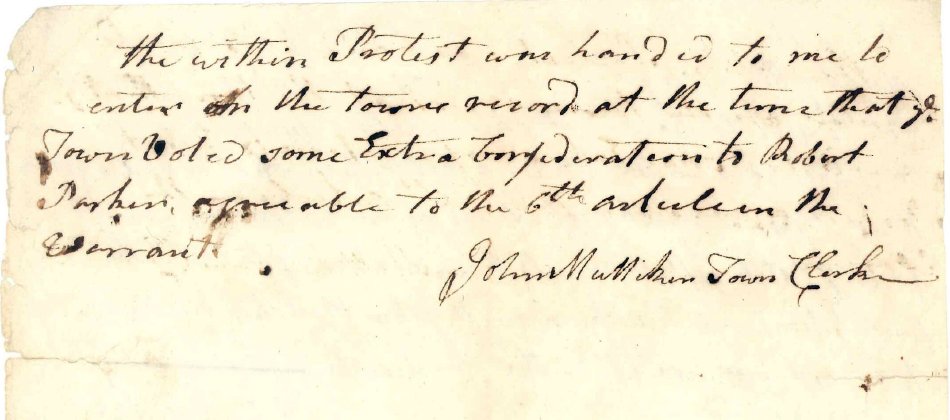 the within Protest was handed to me to
enter on the towne record at the time that ye
Town Voted some Extra Consederation to Robert
Parker, agreeable to the 6th article in the
Warrant.
John Mulliken Town Clerk